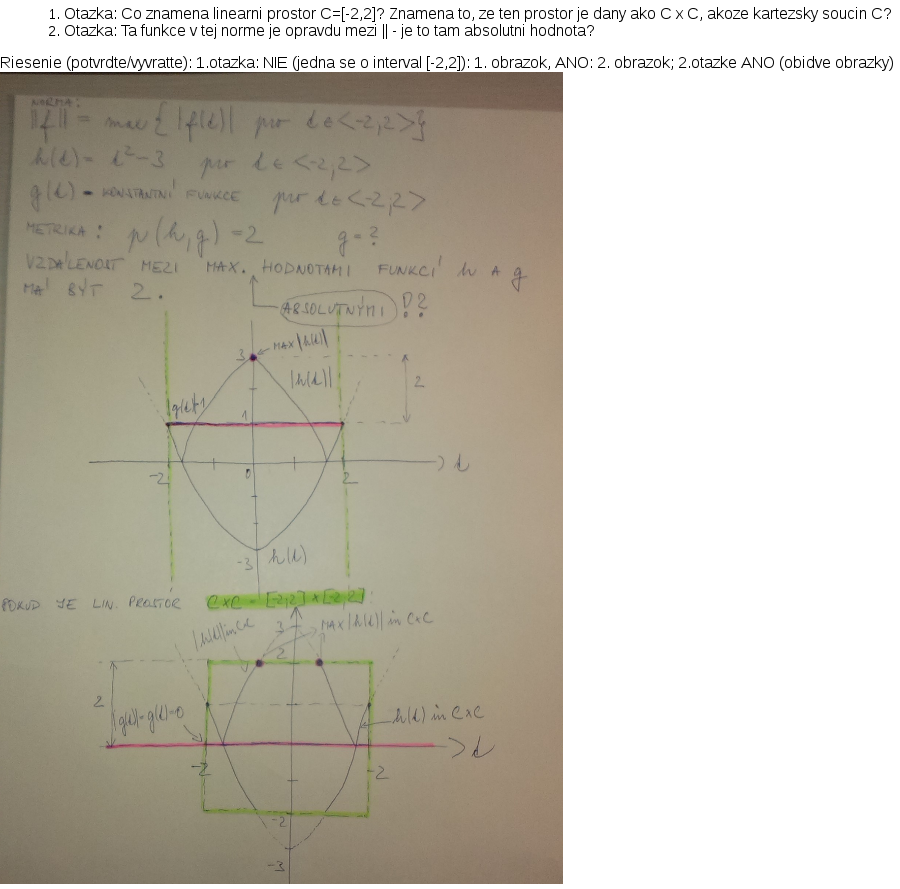 1. Otazka: Co znamena linearni prostor C=[-2,2]? Znamena to, ze ten prostor je dany ako C x C, akoze kartezsky soucin C?
2. Otazka: Ta funkce v tej norme je opravdu mezi || - je to tam absolutni hodnota?
Riesenie (potvrdte/vyvratte): 1.otazka: NIE (jedna se o interval [-2,2]): 1. obrazok, ANO: 2. obrazok; 2.otazke ANO (obidve obrazky)
NORMA:
||f|| = max { |f(t)| pro t ∈ <-2,2>}
h(t) = t²-3 pro t ∈ <-2,2>
g(t) - KONSTANTNÍ FUNKCE pro t ∈ <-2,2>
METRIKA: p(h,g) = 2 g = ?
VZDÁLENOST MEZI MAX. HODNOTAMI FUNKCÍ h A g
MÁ BÝT 2.
ABSOLUTNÝMI !?
3 MAX|h(t)|
|h(t)| 2
|g(t)|=1 1
-2 0 2 t
-3 h(t)
POKUD JE LIN. PROSTOR CxC = [-2,2] x [-2,2]:
3 MAX|h(t)| in CxC
|h(t)| in CxC 2
2
|g(t)|=g(t)=0 h(t) in CxC
-2 2 t
-2
-3